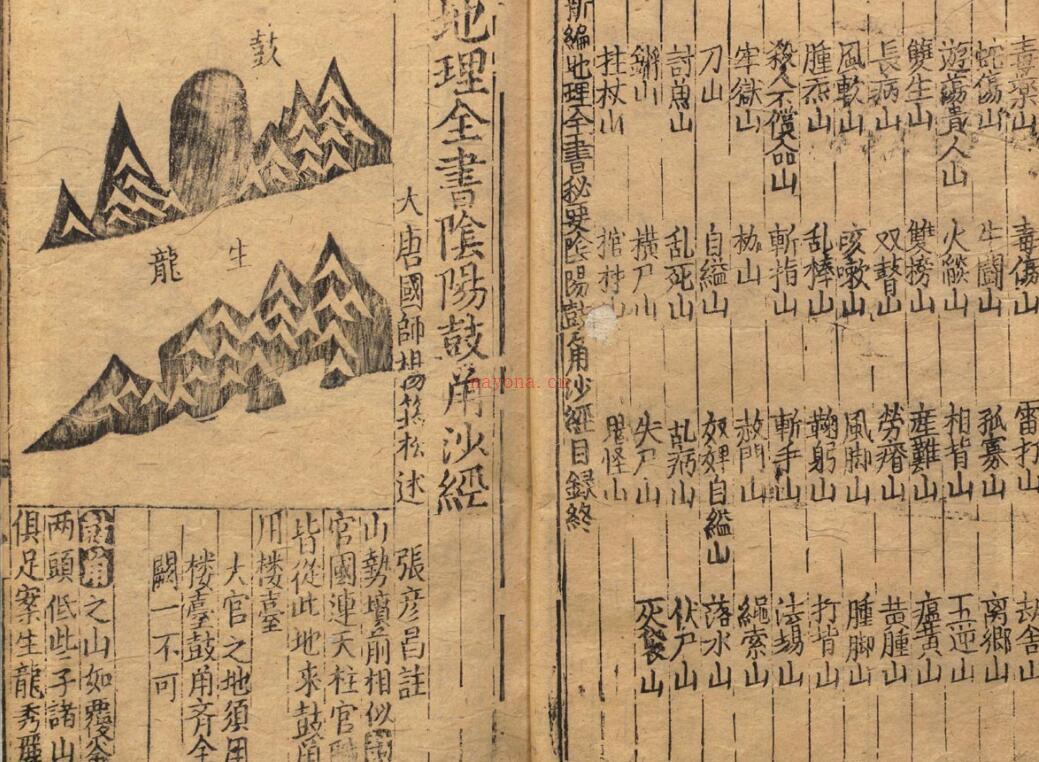 毒藥山 毒傷山 雷打山 劫舍山
蛇傷山 牛鬪山 孤寡山 离鄉山
遊蕩貴人山 火燄山 相背山 五逆山
雙生山 雙山 産難山 瘟黄山
長病山 双瞽山 勞瘠山 黄腫山
風軟山 咳嗽山 風脚山 腫脚山
腫山 乱棒山 鞠躬山 打背山
殺人不償命山 斬指山 斬手山 法塲山
牢獄山 枷山 赦門山 繩索山
刀山 自縊山 奴婢自縊山 落水山
討魚山 乱死山 乱病山 伏尸山
山 橫尸山 失尸山 灰袋山
拄杖山 棺材山 鬼怪山
新編地理全書秘要陰陽鼓角沙經目録終
地理全書陰陽鼓角沙經
大唐國師楊筠松述
張彦昌註
鼓
生龍
山勢墳前相似
官國連天柱官職
皆從此地來鼓角
用楼臺
大官之地須用
楼臺鼓角齊全
闕一不可
鼓角之山如覆釜
两頭低些子諸山
俱足案生龍秀麗
nayona.cn